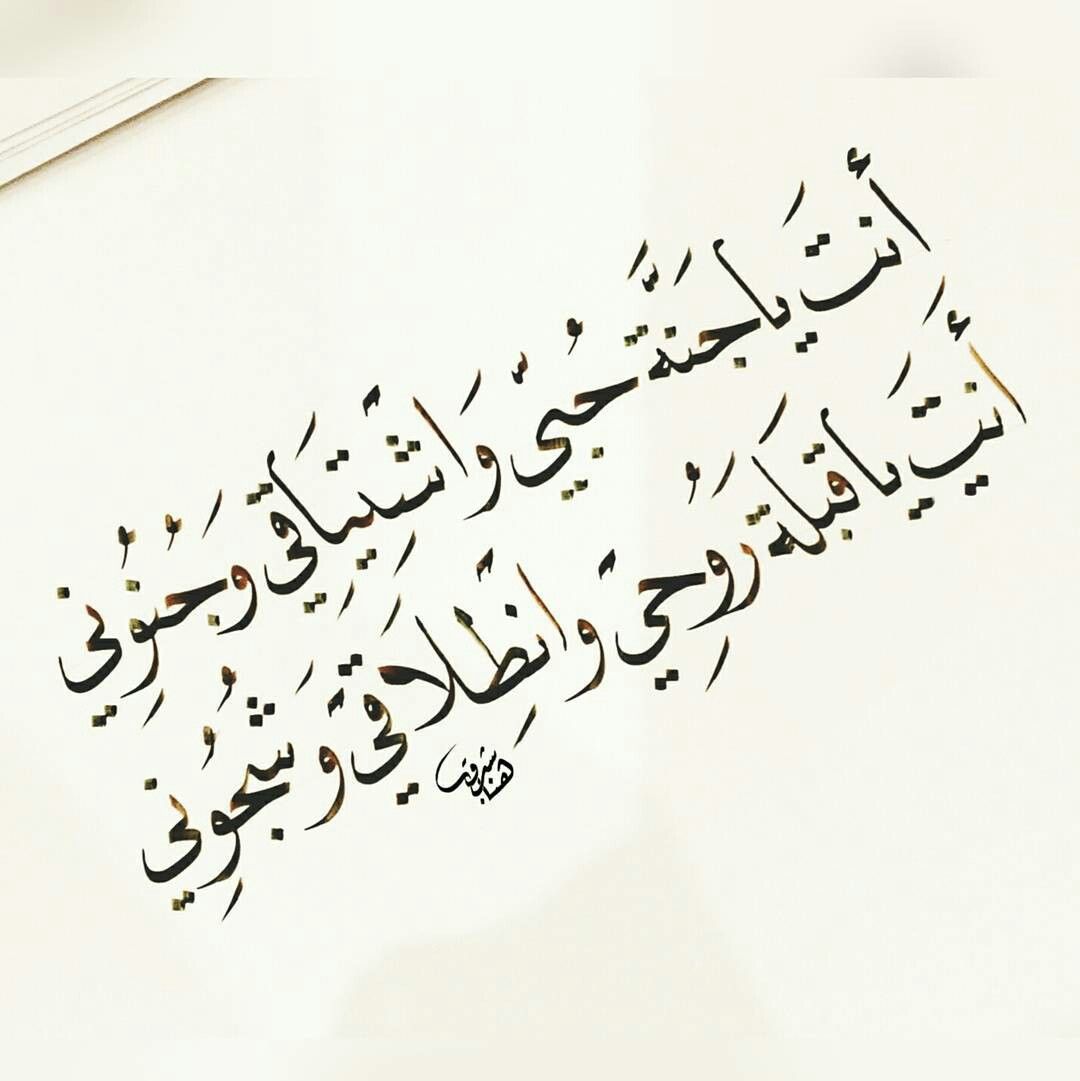 أَنتَ يَا جَنَّةَ حُبّي وَاشْتِيَاقِي وَجُنُونِي
أَنتَ يَا قبلَة رُوحِي وَانْطِلَاقِي وَشُجُونِي